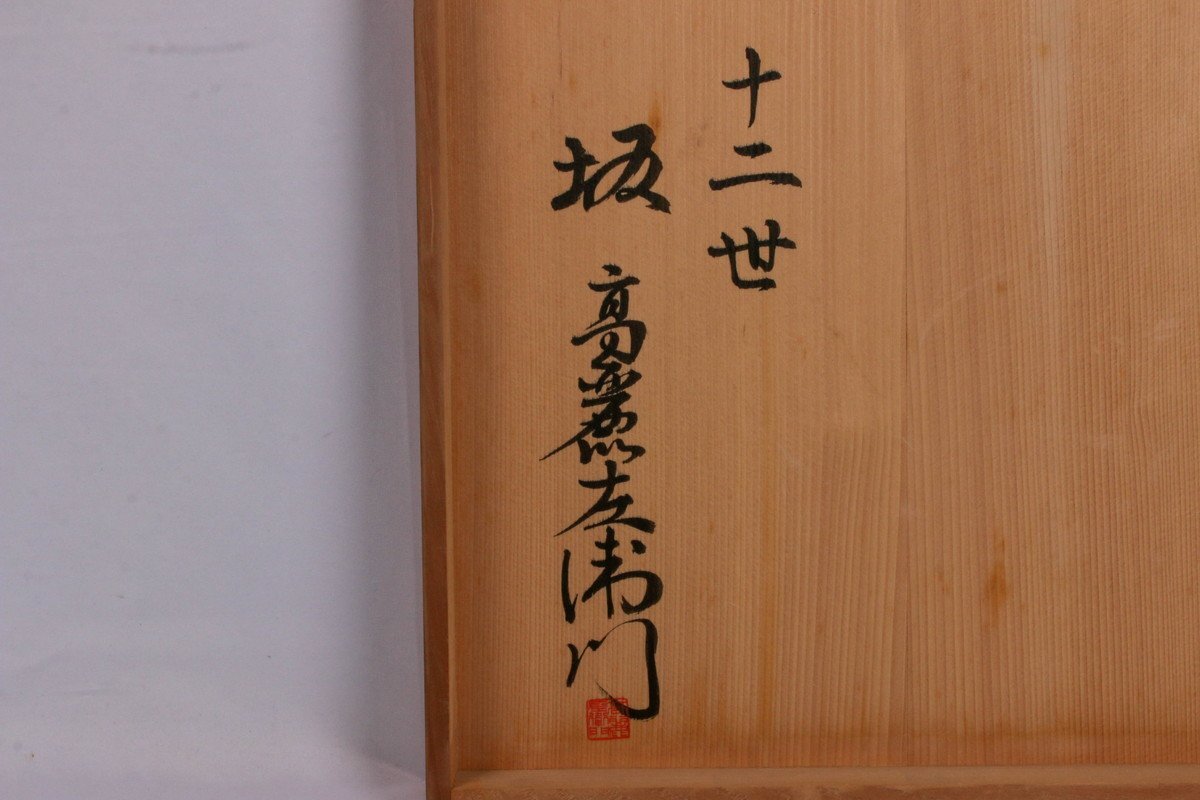 十二世
坂高麗左衛門